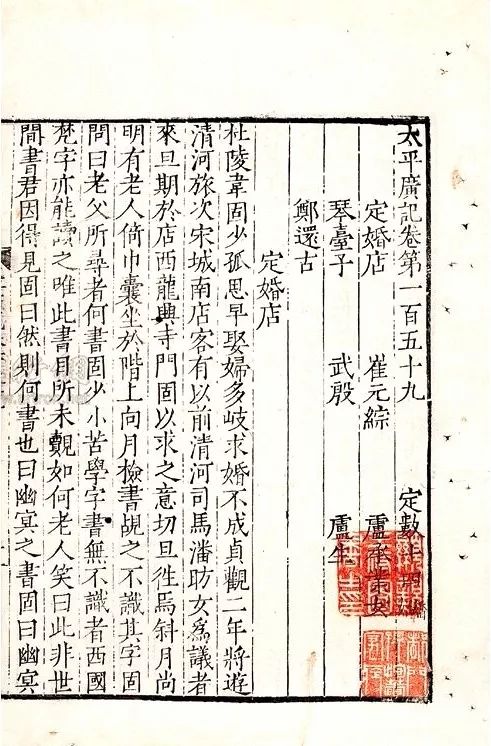 太平廣記卷第一百五十九 定數十四
定婚店 崔元綜 盧承業女
琴臺子 武殷 盧生
鄭還古
定婚店
杜陵韋固少孤思早娶婦多岐求婚不成貞觀二年將遊
清河旅次宋城南店客有以前清河司馬潘昉女爲議者
來旦期於店西龍興寺門固以求之意切旦徃焉斜月尚
明有老人倚巾囊坐於階上向月撿書覘之不識其字固
問曰老父所尋者何書固少小苦學字書無不識者西國
梵字亦能讀之唯此書目所未覿如何老人笑曰此非世
間書君因得見固曰然則何書也曰幽冥之書固曰幽冥